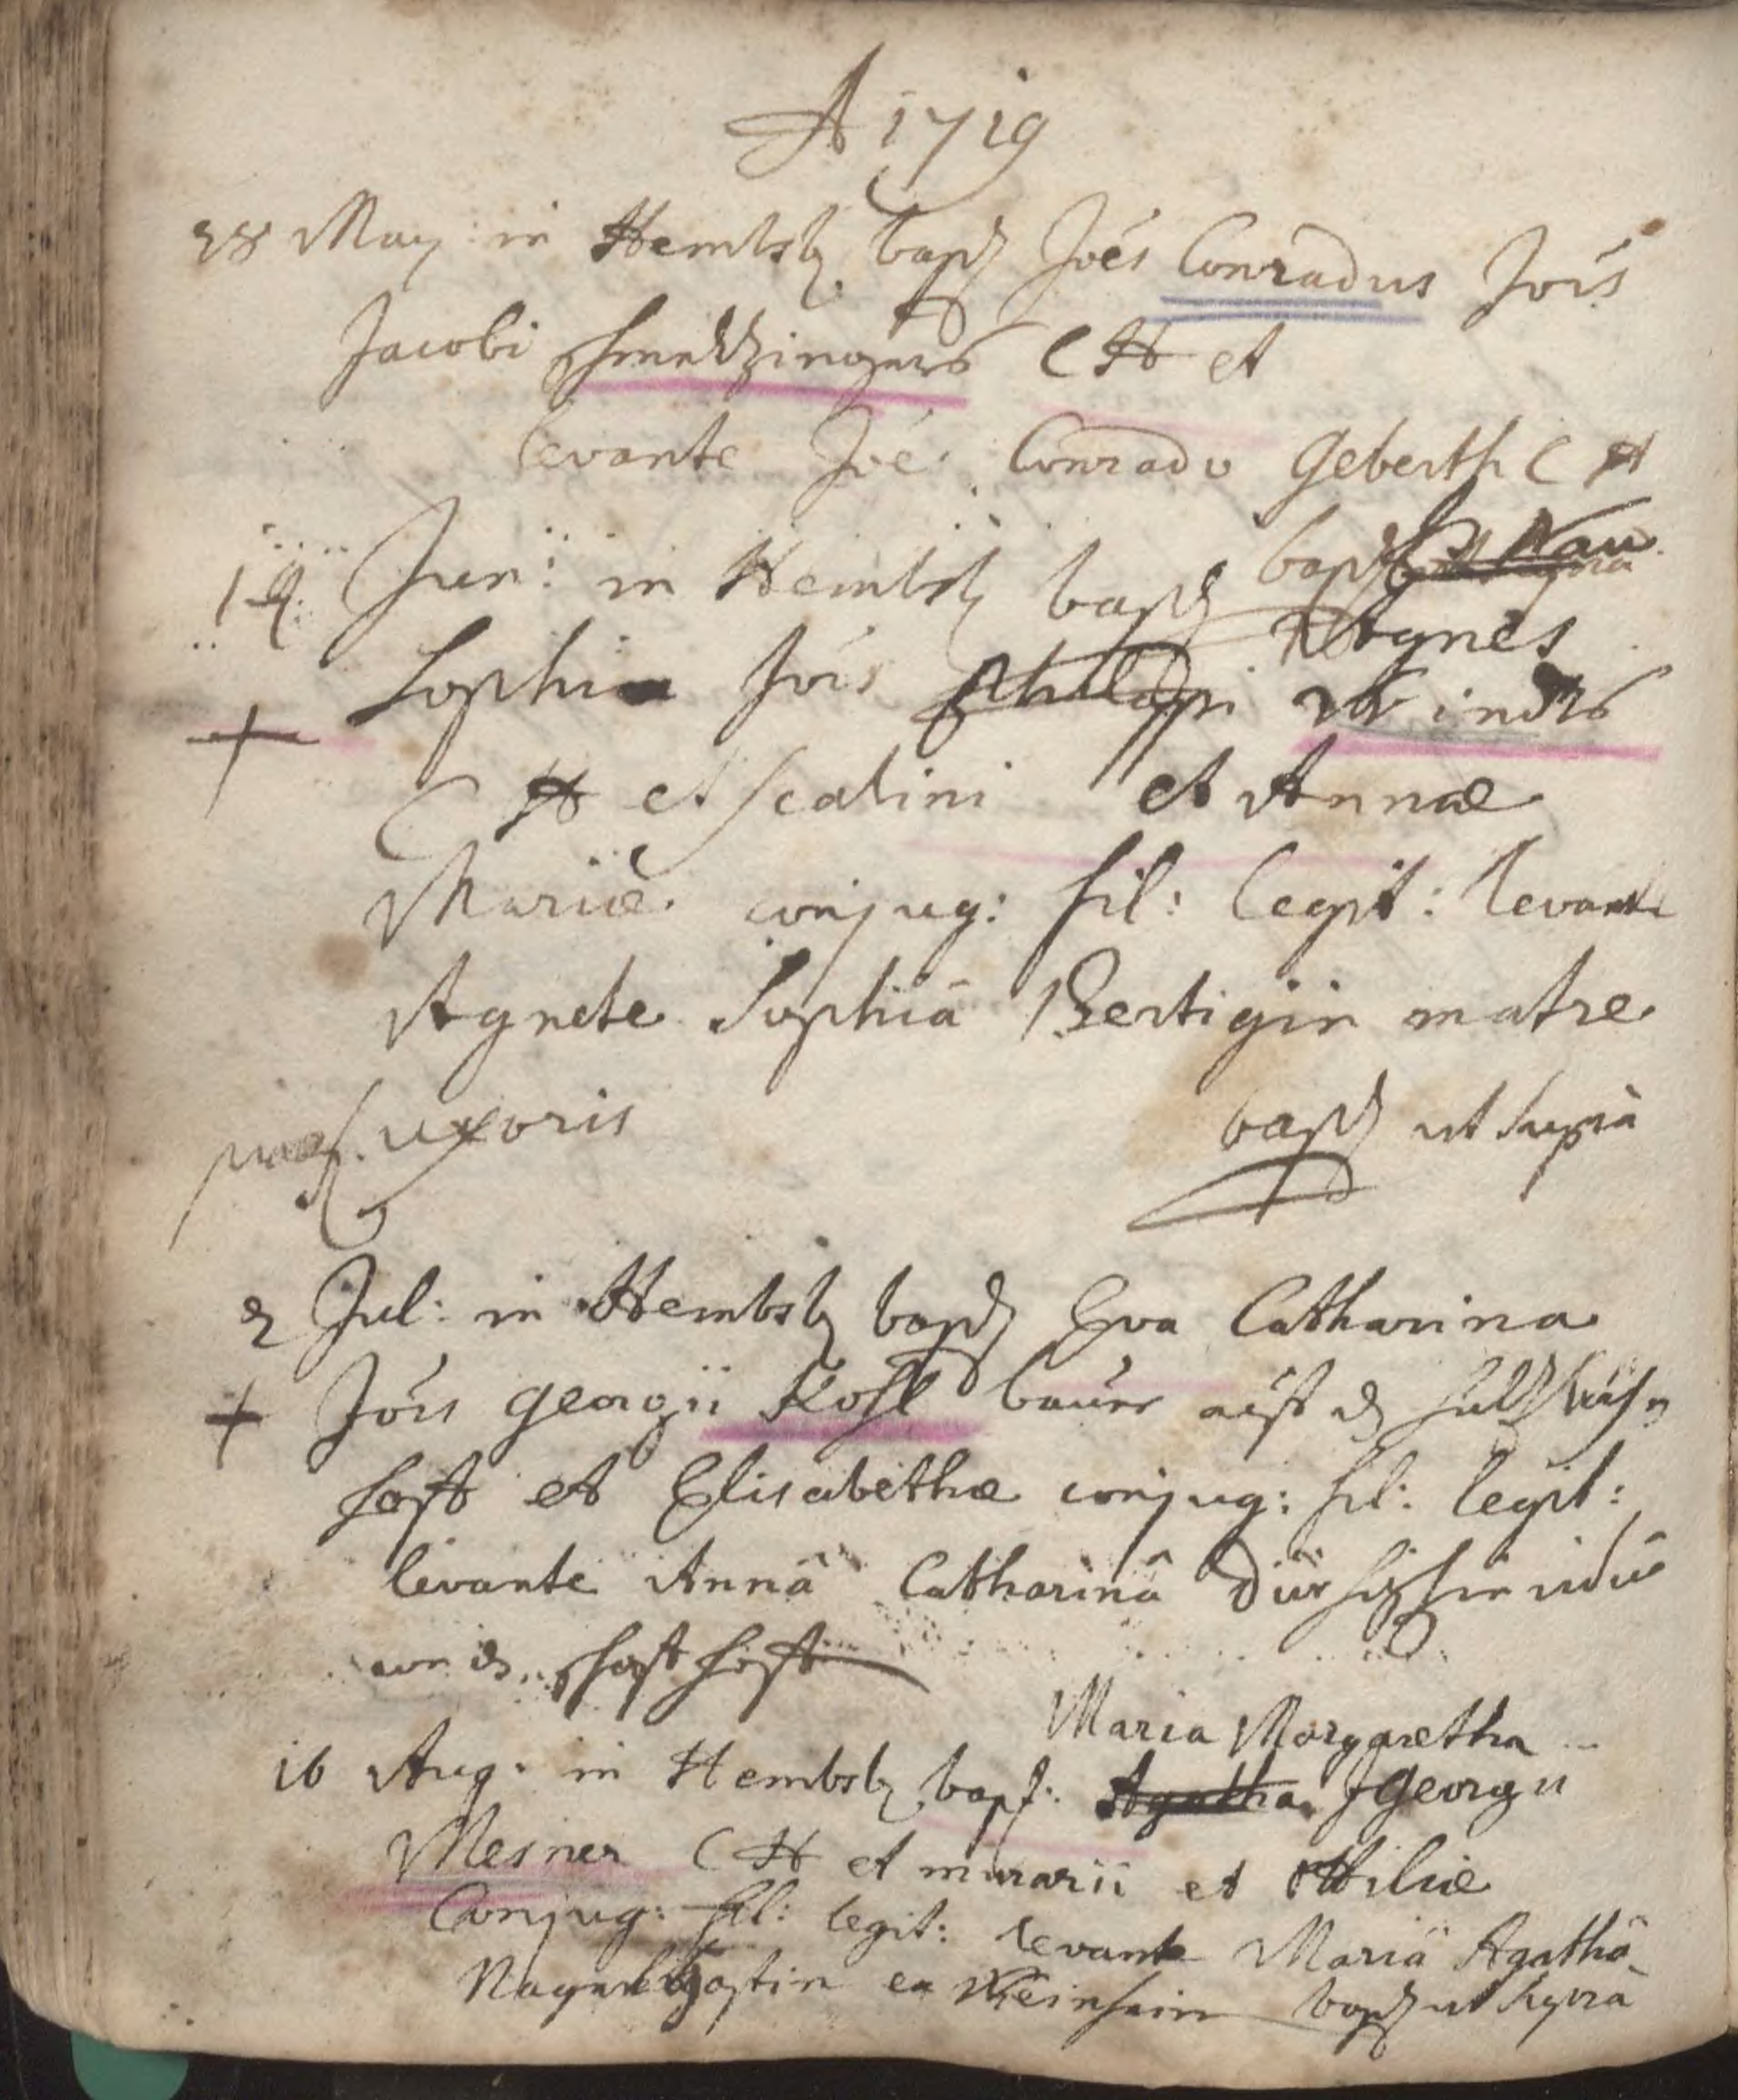 A 1719
28 May in Hembsb bapt Joés Conradus Jois
Jacobi Smeltzingers C H et
levante Joé Conrado Geberth C H
14 Jun: in Hembsb bapt
Agnes
Sophia Jois Philippi Winders
C H et Scabini et Annæ
Mariæ conjug: fil: legit: levante
Agnete Sophiâ Bertigin matre
præf. uxoris bapt ut supra
2 Jul: in Hembsb bapt Eva Catharina
+ Jois Georgii Kohl bauer auff
hoff et Elisabethæ conjug: fil: legit:
levante Annâ Catharinâ
16 Aug: in Hembsb bapt: Maria Margaretha Agatha JGeorgii
Mesner C H et murarii et Ottiliæ
Conjug: fil: legit: levante Mariâ Agathâ
ex Weinheim bapt ut supra